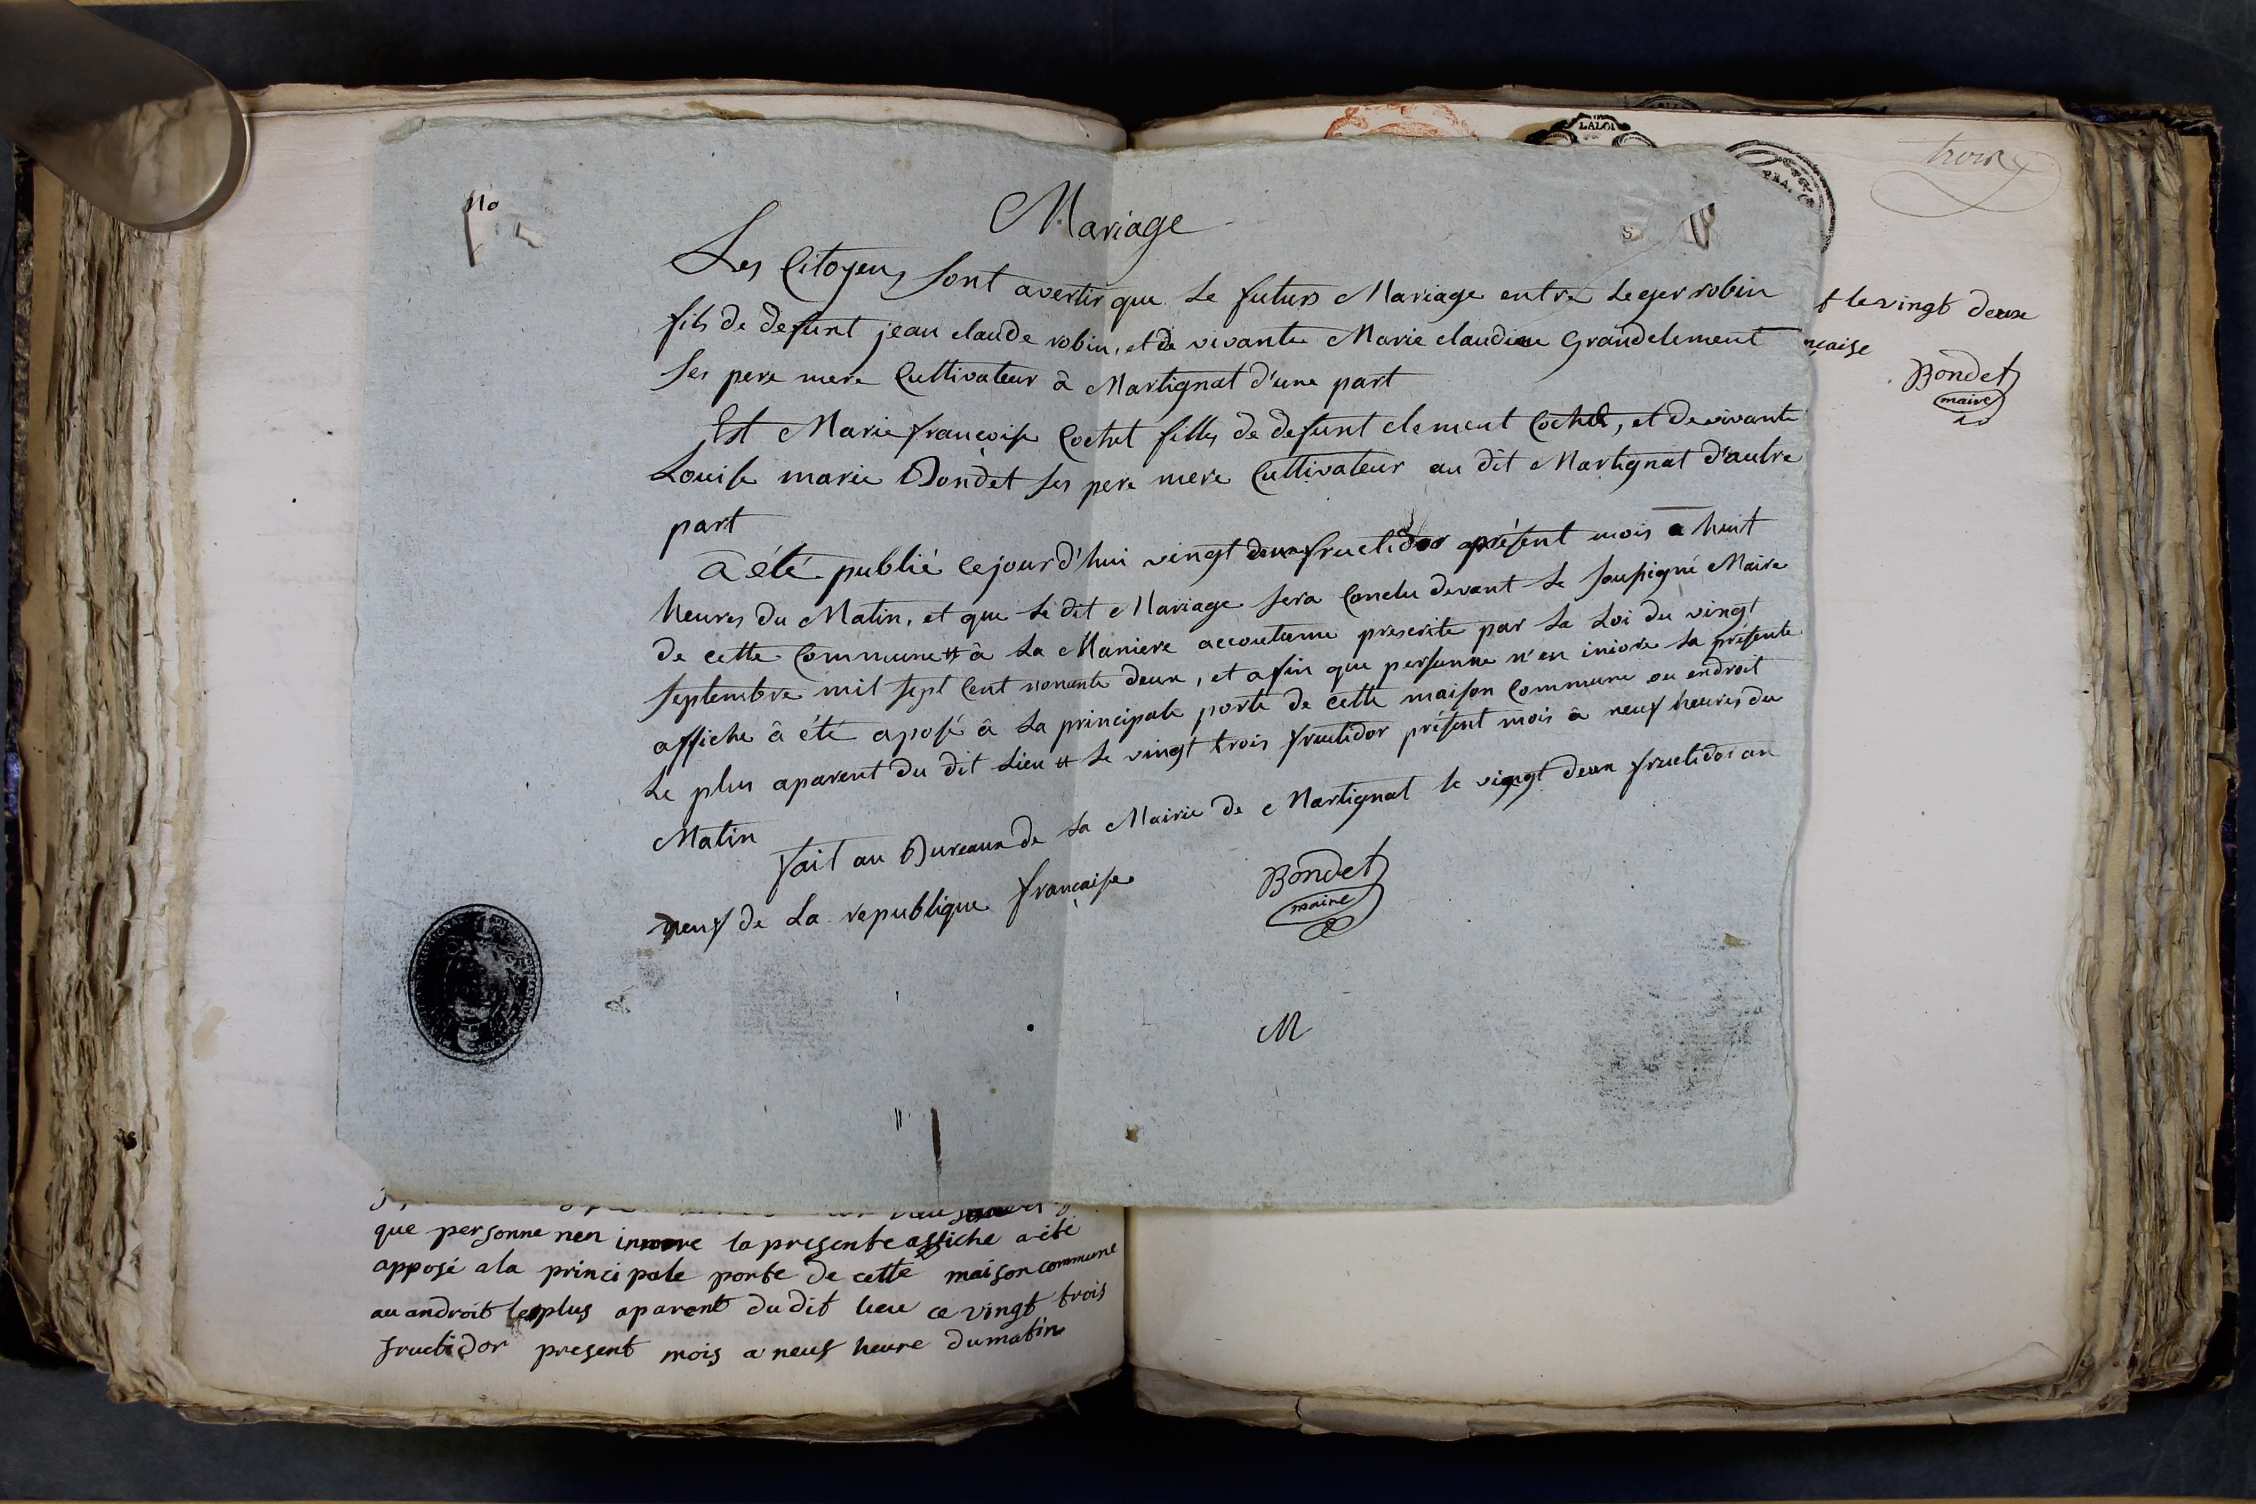 Mariage
Les Citoyens sont avertir que le futurs Mariage entre Leger robin
fils de defunt jean claude robin, et de vivante Marie claudine Grandclement
ses pere mere Cultivateur à Martignat d'une part
Est Marie françoise Cochet filles de defunt clement Cochet, et de vivante
Louise marie Bondet ses pere mere Cultivateur au dit Martignat d'autre
part
a été publié cejourd'hui vingt deux fructidor présent mois a huit
heures du Matin, et que le dit Mariage sera Conclu devant le soussigné Maire
de cette Commune à la Maniere accoutume prescrite par la Loi du vingt
septembre mil sept Cent nonante deux, et afin que personne n'en iniore la présente
affiche à été aposé à la principale porte de cette maison Commune ou endroit
Le plus aparent du dit Lieu le vingt trois fructidor présent mois à neuf heures du
Matin
fait au Bureaux de la Mairie de Martignat le vingt deux fructidor an
neuf de La republique française
Bondet
maire
M
LALOI
trois
t le vingt deux
nçaise
Bondet
maire
que personne nen innore la presente affiche a été
apposé a la principale porte de cette maison commune
au androit le plus aparent du dit lieu ce vingt trois
fructidor present mois a neuf heure du matin